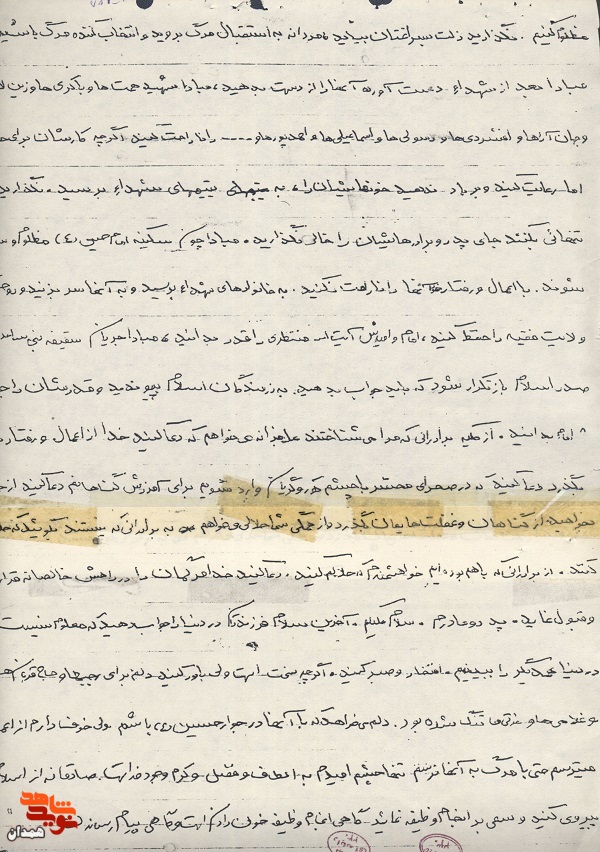 مظلوم کنیم. نگذارید ذلت سراغتان بیاید مردانه به استقبال مرگ بروید و انتخاب کننده مرگ باشید
مبادا بعد از شهداء دست آورد آنها را از دست بدهید، مبادا شهید همت ها و باکری ها و زین
و جهان آراها و افشردی ها و رسولی ها و اسماعیلی ها و احمدپورها و .... را ناراحت کنید اگرچه کارشان برای
اما رعایت کنید و بر باد ندهید خونهایشان را، به یتیمهای شهداء برسید. نگذارید
تنهائی بکنند جای پدر و برادرهایشان را خالی نگذارید. مبادا چون سکینه امام حسین (ع) مظلوم و
شوند. با اعمال و رفتار آنها را ناراحت نکنید. به خانوادهای شهداء برسید و به آنها سر بزنید و
ولایت فقیه را حفظ کنید، امام و آیت اله منتظری را قدر بدانید، مبادا جریان سقیفه بنی ساعده
صدر اسلام باز تکرار شود که باید جواب بدهید. به رزمندگان اسلام بپیوندید و قدرشان را
امام بدانید. از کلیه برادرانی که مرا می شناختند عاجزانه می خواهم که دعا کنید خدا از اعمال و رفتار
بگذرد دعا کنید که در صحرای محشر با چشم کور و گریان وارد نشویم برای آمرزش گناهانم دعا کنید از
بخواهید از گناهان و غفلت هایمان بگذرد و از جملگی شما حلالی می خواهم به برادرانی که نیستند بگوئید که
کنند. از برادرانی که با هم بوده ایم خواهشمندم که حلالم کنید. دعا کنید خداوند همگیمان را در راهش خالصانه قرار
و قبول نماید. پدر و مادرم. سلام علیکم. آخرین سلام فرزندتان در دنیا را جواب دهید که معلوم نیست
در دنیا همدیگر را ببینیم. افتخار و صبر کنید. اگرچه سخت است ولی باور کنید دلم برای
و غلامی ها و عزتی ها تنگ شده بود. دلم می خواهد که با آنها در جوار حسین (ع) باشم ولی خوف دارم از
میترسم حتی با مرگ به آنها نرسم تنها چشم امیدم به الطاف و فضل و کرم خداست. صادقانه از اسلام
پیروی کنید و سعی بر انجام وظیفه نمائید. گاهی انجام وظیفه خون دادن است و گاهی پیام رساندن
شاهد
نوید
همدان